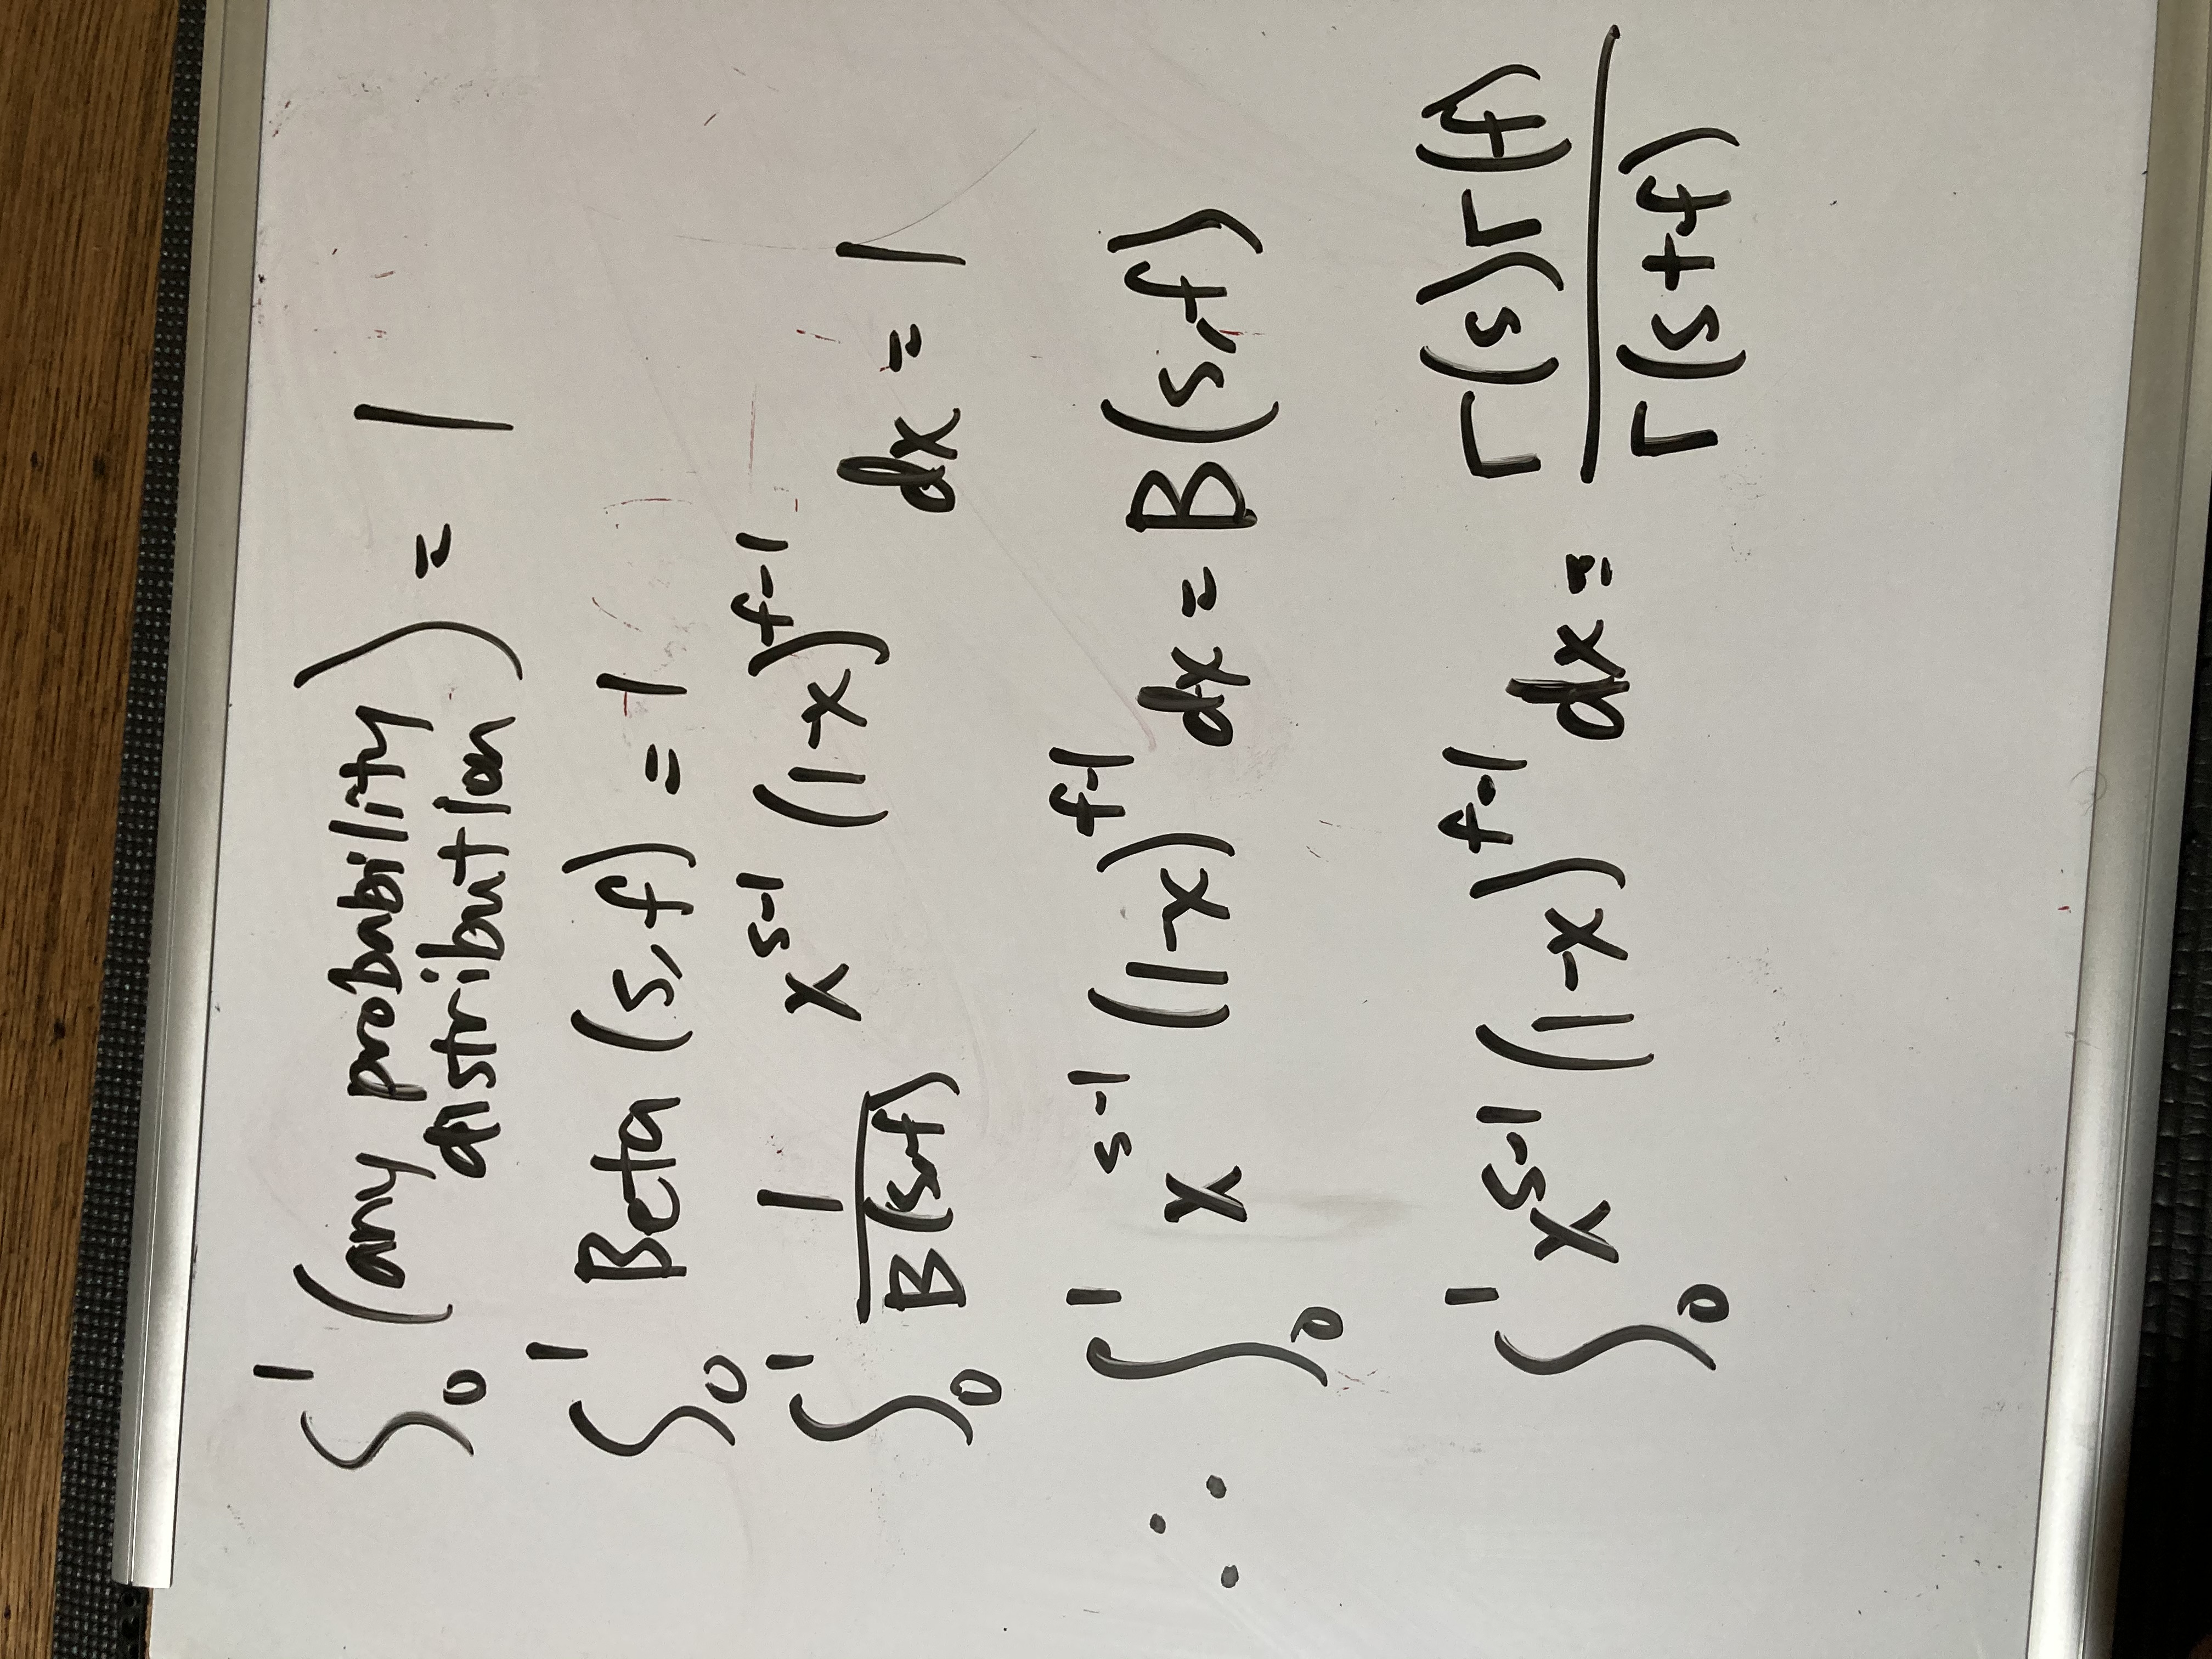 ∫₀¹ (any probability distribution) = 1
∫₀¹ Beta (s, f) = 1
∫₀¹ 1/B(s,f) x^(s-1) (1-x)^(f-1) dx = 1
∴ ∫₀¹ x^(s-1) (1-x)^(f-1) dx = B(s,f)
∫₀¹ x^(s-1) (1-x)^(f-1) dx = Γ(s)Γ(f) / Γ(s+f)